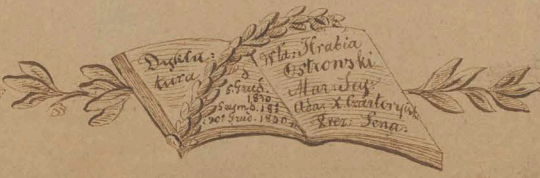 Dykta:
tura
d
5 Grud.
1830
Sejmo. d. 18 i
20 Grud. 1830
Wła: Hrabia
Ostrowski
Mar: Sej:
Ada: X. Czartorys:
Prez: Sena: